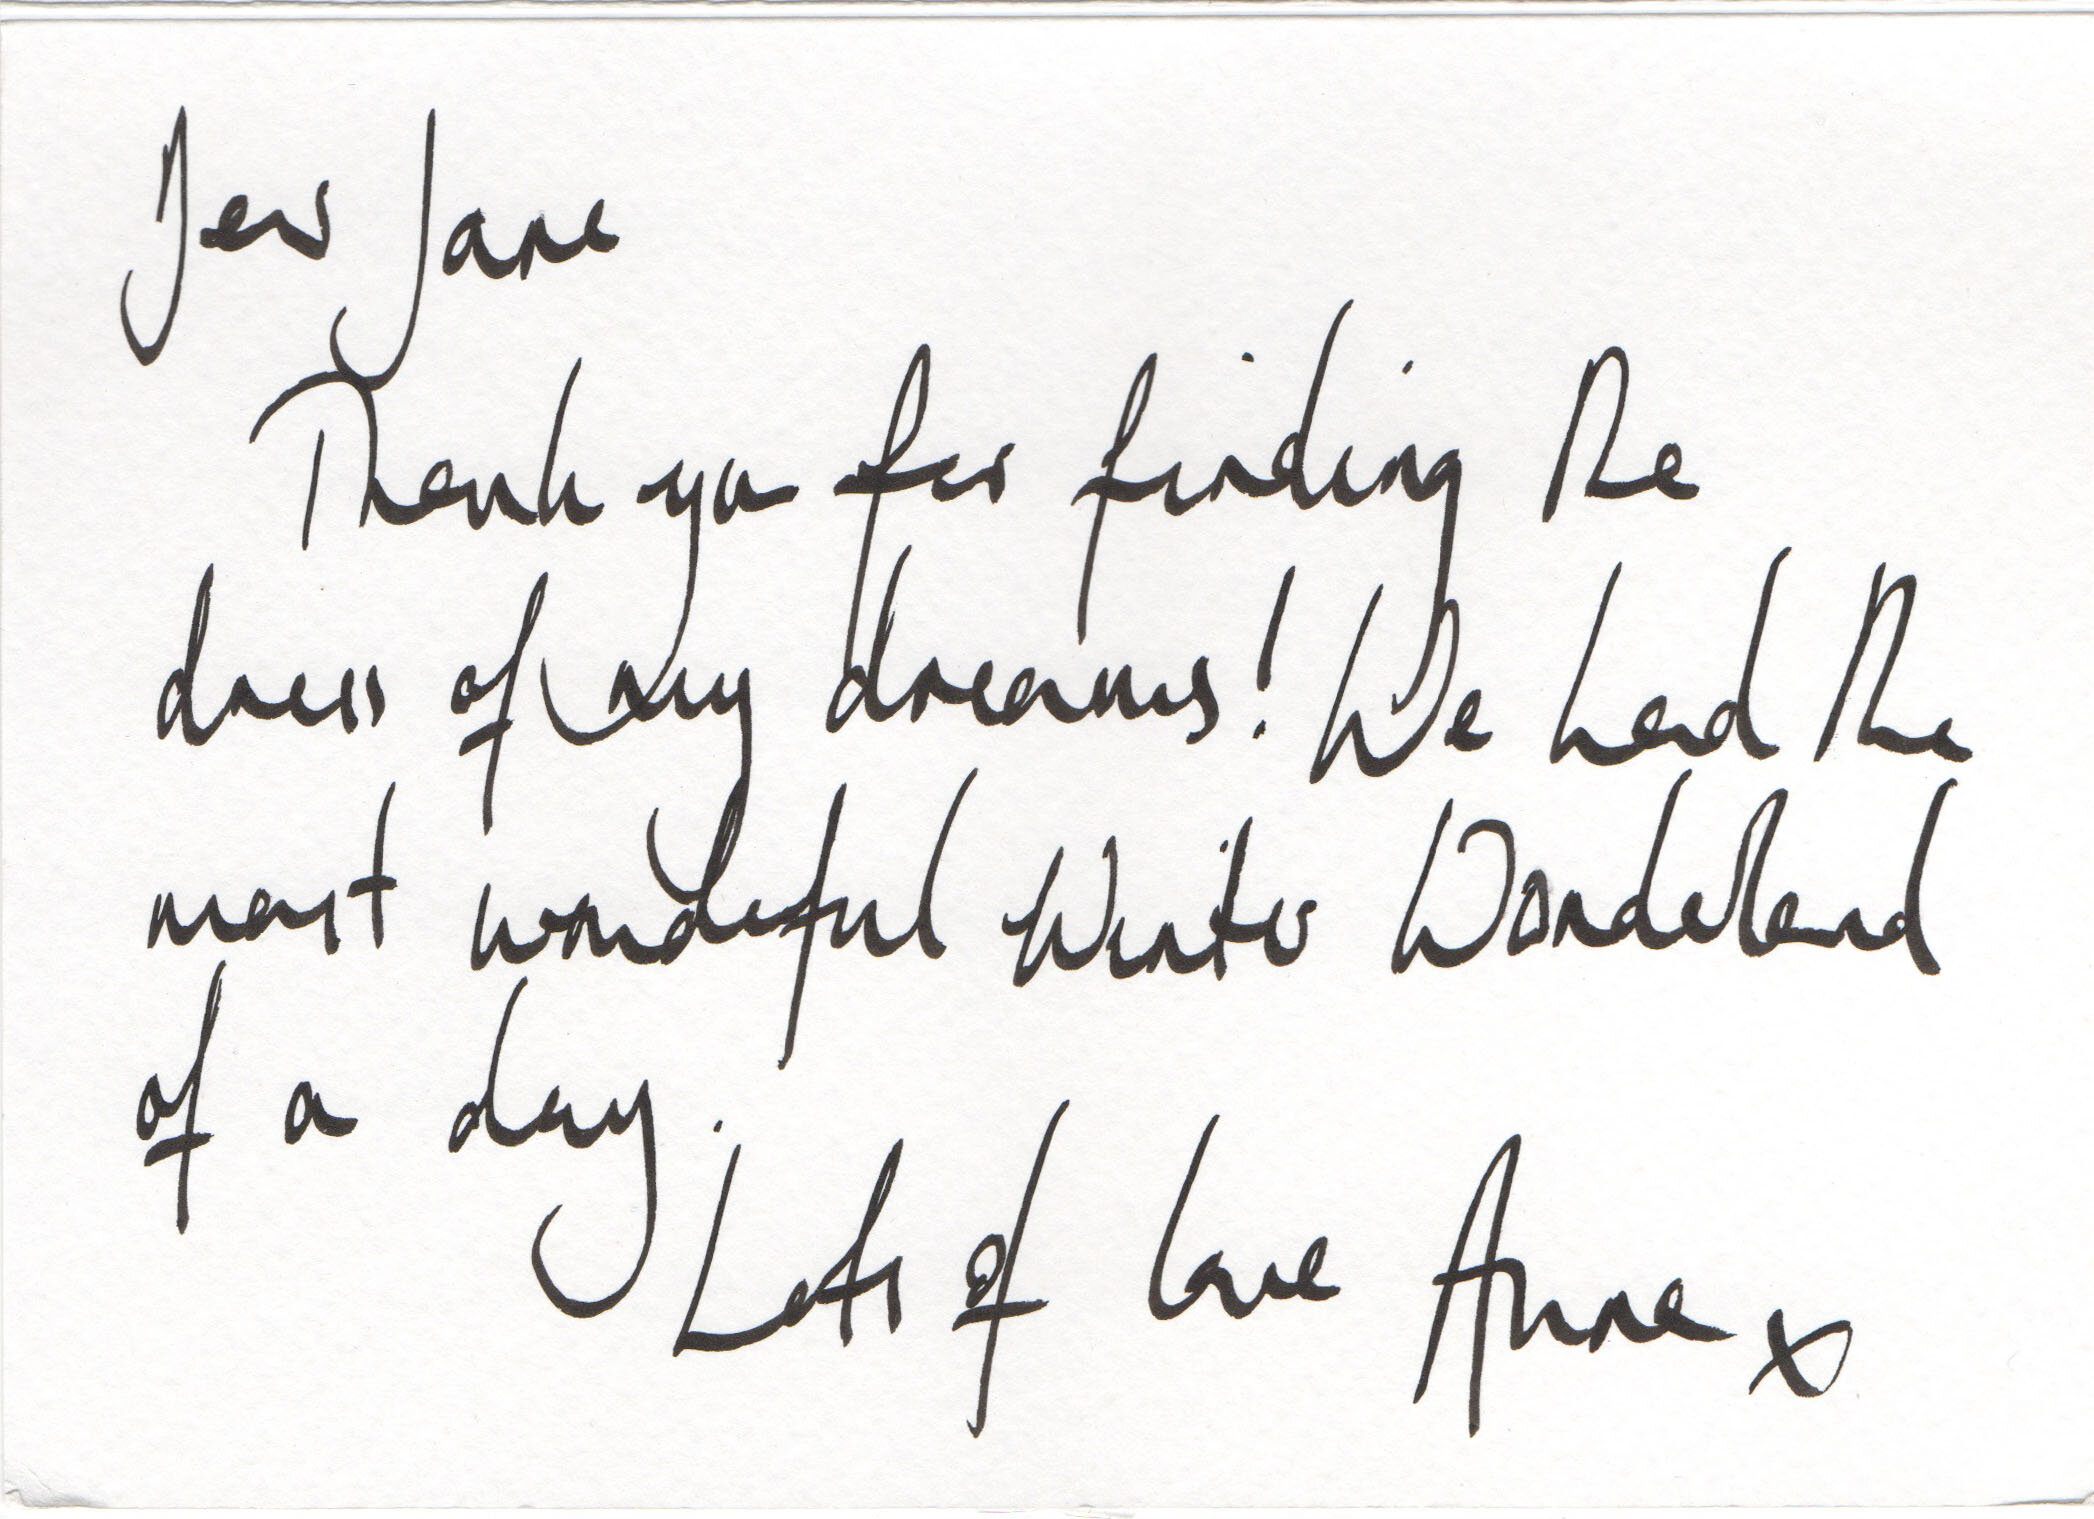 Dear Jane
Thank you for finding the
dress of my dreams! We had the
most wonderful Winter Wonderland
of a day.
Lots of love Anne x